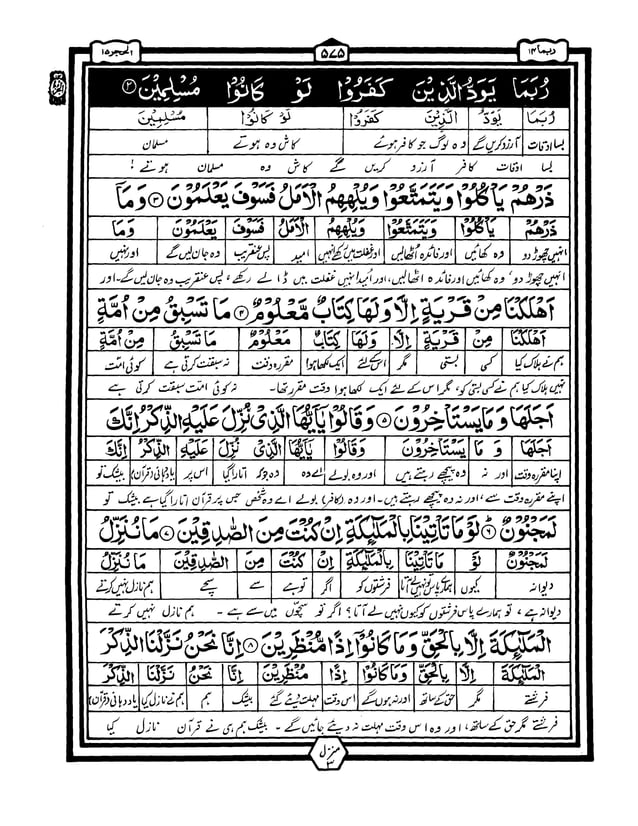 ربما ۱۴
۵۷۵
الحجر ۱۵
رُبَمَا يَوَدُّ الَّذِيْنَ كَفَرُوْا لَوْ كَانُوْا مُسْلِمِيْنَ ﴿۲﴾
رُبَمَا يَوَدُّ الَّذِيْنَ كَفَرُوْا لَوْ كَانُوْا مُسْلِمِيْنَ
بسا اوقات آرزو کریں گے وہ لوگ جو کافر ہوئے کاش وہ ہوتے مسلمان
بسا اوقات کافر آرزو کریں گے کاش وہ مسلمان ہوتے !
ذَرْهُمْ يَاْكُلُوْا وَيَتَمَتَّعُوْا وَيُلْهِهِمُ الْاَمَلُ فَسَوْفَ يَعْلَمُوْنَ ﴿۳﴾ وَمَاۤ
ذَرْهُمْ يَاْكُلُوْا وَيَتَمَتَّعُوْا وَيُلْهِهِمُ الْاَمَلُ فَسَوْفَ يَعْلَمُوْنَ وَمَا
انہیں چھوڑ دو وہ کھائیں اور فائدہ اٹھالیں اور غفلت میں رکھے انہیں امید پس عنقریب وہ جان لیں گے اور نہیں
انہیں چھوڑ دو، وہ کھائیں اور فائدہ اٹھالیں، اور اُمید انہیں غفلت میں ڈالے رکھے، پس عنقریب وہ جان لیں گے۔ اور
اَهْلَكْنَا مِنْ قَرْيَةٍ اِلَّا وَلَهَا كِتَابٌ مَّعْلُوْمٌ ﴿۴﴾ مَا تَسْبِقُ مِنْ اُمَّةٍ
اَهْلَكْنَا مِنْ قَرْيَةٍ اِلَّا وَلَهَا كِتَابٌ مَعْلُوْمٌ مَا تَسْبِقُ مِنْ اُمَّةٍ
ہم نے ہلاک کیا کسی بستی مگر اس کے لئے ایک لکھا ہوا مقررہ وقت نہ سبقت کرتی ہے کوئی امت
نہیں ہلاک کیا ہم نے کسی بستی کو، مگر اس کے لئے ایک لکھا ہوا وقت مقرر تھا۔ نہ کوئی امت سبقت کرتی ہے
اَجَلَهَا وَمَا يَسْتَاْخِرُوْنَ ﴿۵﴾ وَقَالُوْا يٰۤاَيُّهَا الَّذِيْ نُزِّلَ عَلَيْهِ الذِّكْرُ اِنَّكَ
اَجَلَهَا وَ مَا يَسْتَاْخِرُوْنَ وَقَالُوْا يٰۤاَيُّهَا الَّذِيْ نُزِّلَ عَلَيْهِ الذِّكْرُ اِنَّكَ
اپنا مقررہ وقت اور نہ وہ پیچھے رہتے ہیں اور وہ بولے اے وہ وہ جو کہ اتارا گیا اس پر یاد دہانی (قرآن) بیشک تو
اپنے مقررہ وقت سے، اور نہ وہ پیچھے رہتے ہیں۔ اور وہ (کافر) بولے اے وہ شخص جس پر قرآن اتارا گیا ہے بیشک تو
لَمَجْنُوْنٌ ﴿۶﴾ لَوْ مَا تَاْتِيْنَا بِالْمَلٰٓئِكَةِ اِنْ كُنْتَ مِنَ الصّٰدِقِيْنَ ﴿۷﴾ مَا نُنَزِّلُ
لَمَجْنُوْنٌ لَوْ مَا تَاْتِيْنَا بِالْمَلٰٓئِكَةِ اِنْ كُنْتَ مِنَ الصّٰدِقِيْنَ مَا نُنَزِّلُ
دیوانہ کیوں ہمارے پاس تو نہیں لے آتا فرشتوں کو اگر تو ہے سے سچے ہم نازل نہیں کرتے
دیوانہ ہے، تو ہمارے پاس فرشتوں کو کیوں نہیں لے آتا؟ اگر تو سچوں میں سے ہے۔ ہم نازل نہیں کرتے
الْمَلٰٓئِكَةَ اِلَّا بِالْحَقِّ وَمَا كَانُوْۤا اِذًا مُّنْظَرِيْنَ ﴿۸﴾ اِنَّا نَحْنُ نَزَّلْنَا الذِّكْرَ
الْمَلٰٓئِكَةَ اِلَّا بِالْحَقِّ وَمَا كَانُوْا اِذًا مُنْظَرِيْنَ اِنَّا نَحْنُ نَزَّلْنَا الذِّكْرَ
فرشتے مگر حق کے ساتھ اور نہ ہوں گے اس وقت مہلت دیئے گئے بیشک ہم ہم نے نازل کیا یاد دہانی (قرآن)
فرشتے مگر حق کے ساتھ، اور وہ اس وقت مہلت نہ دیئے جائیں گے۔ بیشک ہم ہی نے قرآن نازل کیا
منزل ۳